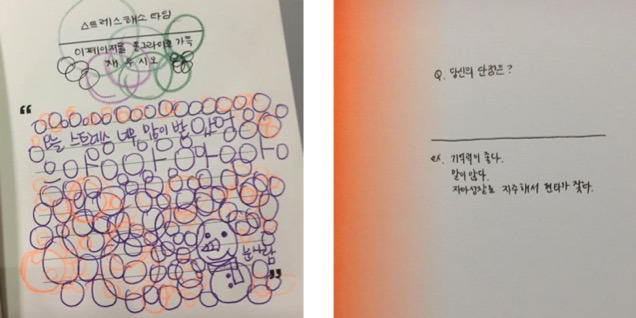 스트레스해소 타임
이페이지를 동그라미로 가득
채우시오
“
오늘 스트레스 너무 많이 받았어
눈사람
”
Q. 당신의 단점은?
ex. 기억력이 좋다.
말이 많다.
자아성찰을 자주해서 현타가 잦다.